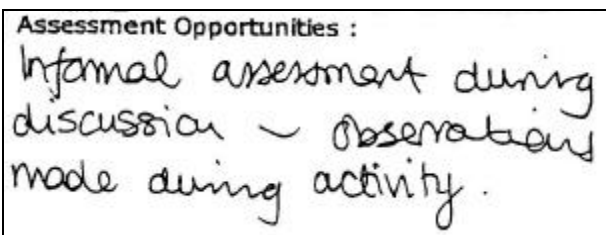 Assessment Opportunities :
Informal assessment during
discussion – observations
made during activity.